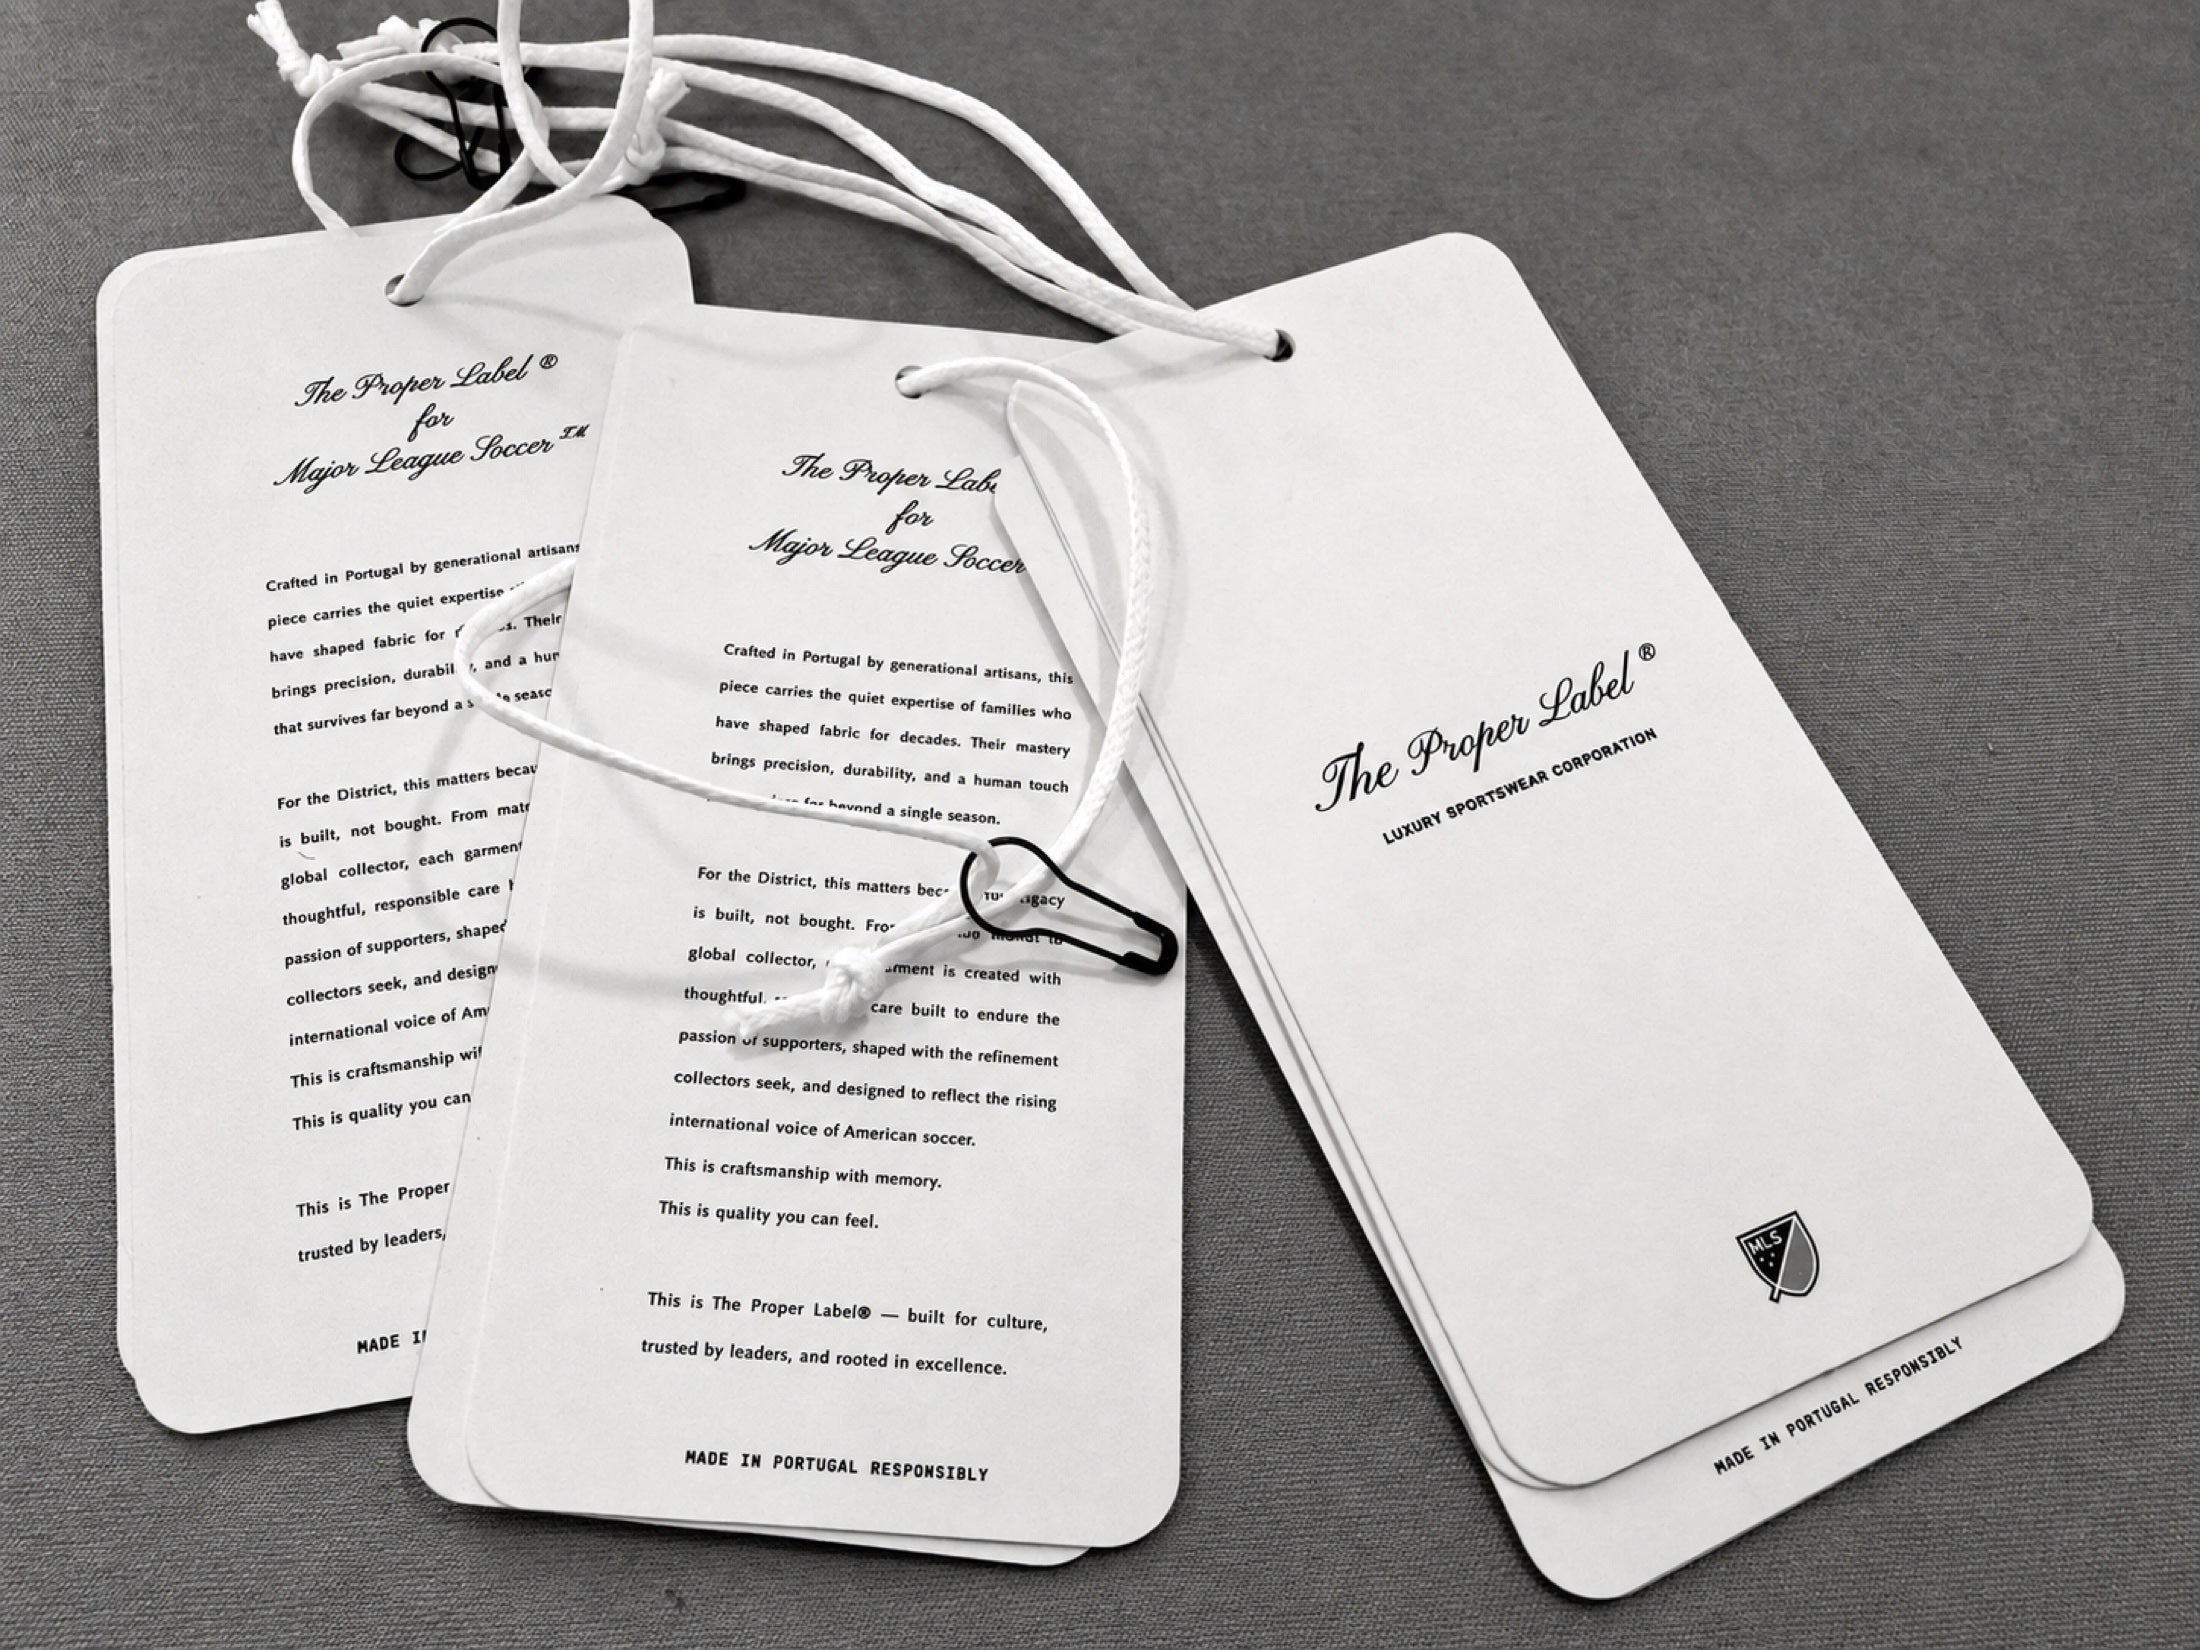 The Proper Label ®
for
Major League Soccer ™
Crafted in Portugal by generational artisans
piece carries the quiet expertise
have shaped fabric for Their
brings precision, and a
that survives far beyond a
For the District, this matters
is built, not bought. From
global collector, each garment
thoughtful, responsible care
passion of supporters, shaped
collectors seek, and
international voice of
This is craftsmanship
This is quality you can
This is The Proper
trusted by leaders,
MADE
The Proper
for
Major League Soccer
Crafted in Portugal by generational artisans, this
piece carries the quiet expertise of families who
have shaped fabric for decades. Their mastery
brings precision, durability, and a human touch
far beyond a single season.
For the District, this matters
is built, not bought.
global collector, is created with
thoughtful, care built to endure the
passion of supporters, shaped with the refinement
collectors seek, and designed to reflect the rising
international voice of American soccer.
This is craftsmanship with memory.
This is quality you can feel.
This is The Proper Label® — built for culture,
trusted by leaders, and rooted in excellence.
MADE IN PORTUGAL RESPONSIBLY
The Proper Label ®
LUXURY SPORTSWEAR CORPORATION
MLS
MADE IN PORTUGAL RESPONSIBLY